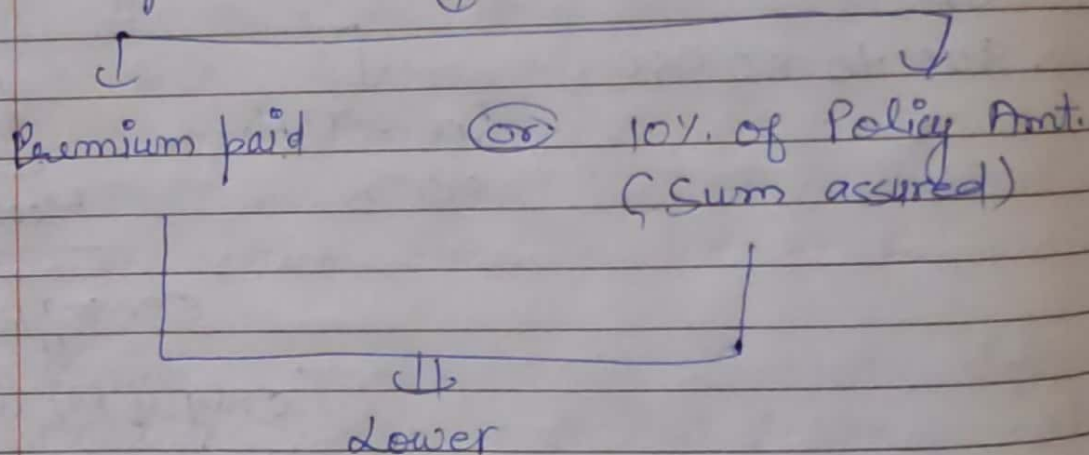 Premium paid (or) 10%. of Policy Amt.
(Sum assured)
Lower